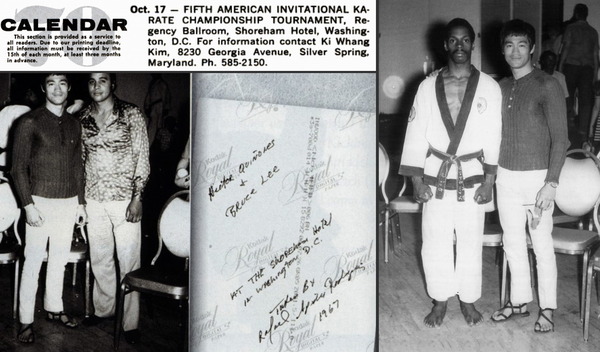 CALENDAR
This section is provided as a service to
all readers. Due to our printing deadline,
all information must be received by the
15th of each month, at least three months
in advance.
Oct. 17 — FIFTH AMERICAN INVITATIONAL KA-
RATE CHAMPIONSHIP TOURNAMENT, Re-
gency Ballroom, Shoreham Hotel, Washing-
ton, D.C. For information contact Ki Whang
Kim, 8230 Georgia Avenue, Silver Spring,
Maryland. Ph. 585-2150.
Hector Quiñones
+
BRUCE LEE
AT THE SHOREHAM HOTEL
in WASHINGTON D.C.
Taken By
Rafael
1967
Royal
Royal
Royal